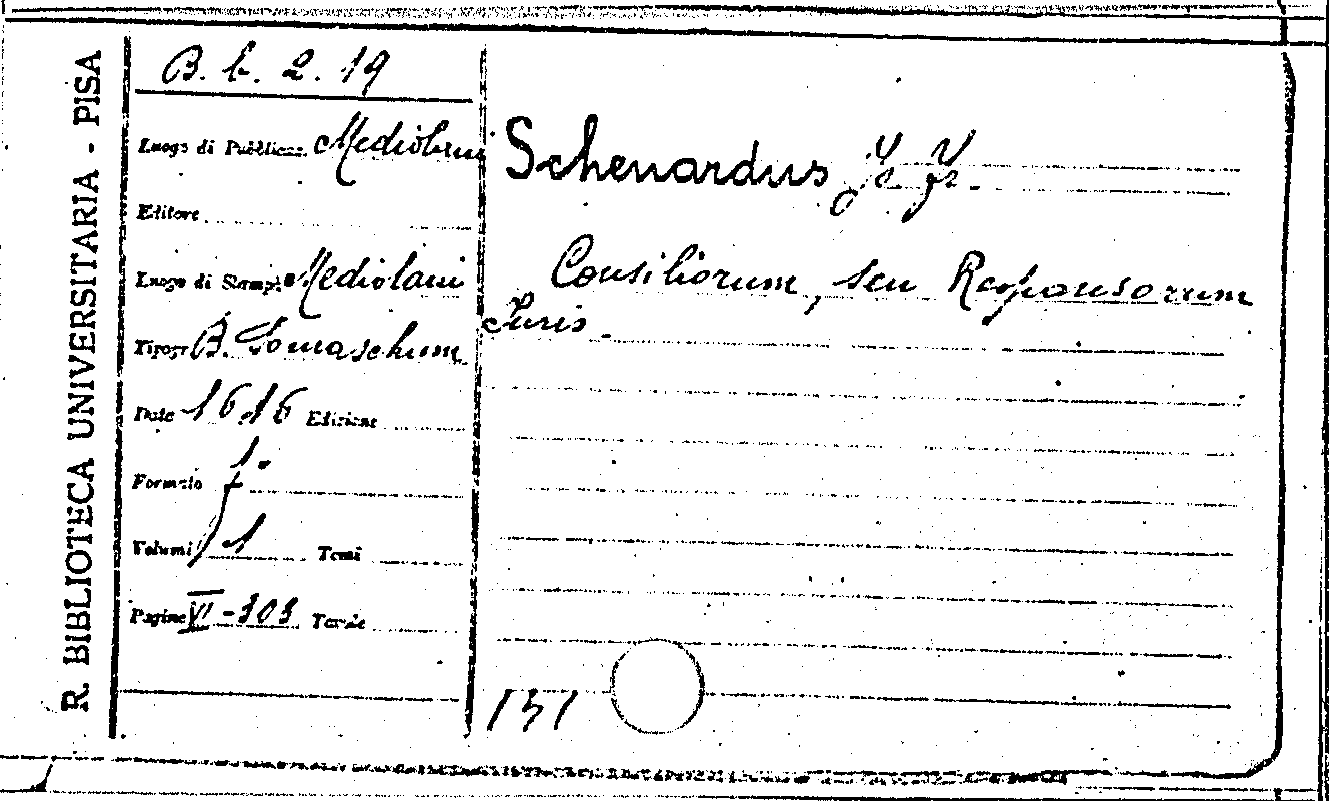 R. BIBLIOTECA UNIVERSITARIA - PISA
B. b. 2. 19
Luogo di Pubblicaz. Mediolani
Editore
Luogo di Stampa Mediolani
Tipogr. B. Somaschum
Date 1616 Edizione
Formato f.
Volumi 1 Tomi
Pagine VI-303 Tavole
Schenardus Jo Fr.
Consiliorum, seu Responsorum
Juris.
151